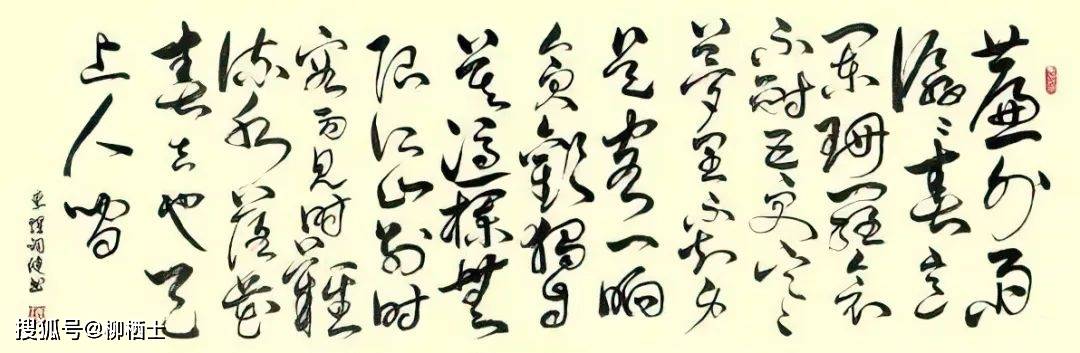 簾外雨
潺々春意
闌珊羅衾
不耐五更寒
夢里不知身
是客一晌
貪歡獨自
莫憑欄無
限江山別時
容易見時難
流水落花
春去也天
上人間
李煜詞
搜狐号@柳栖士